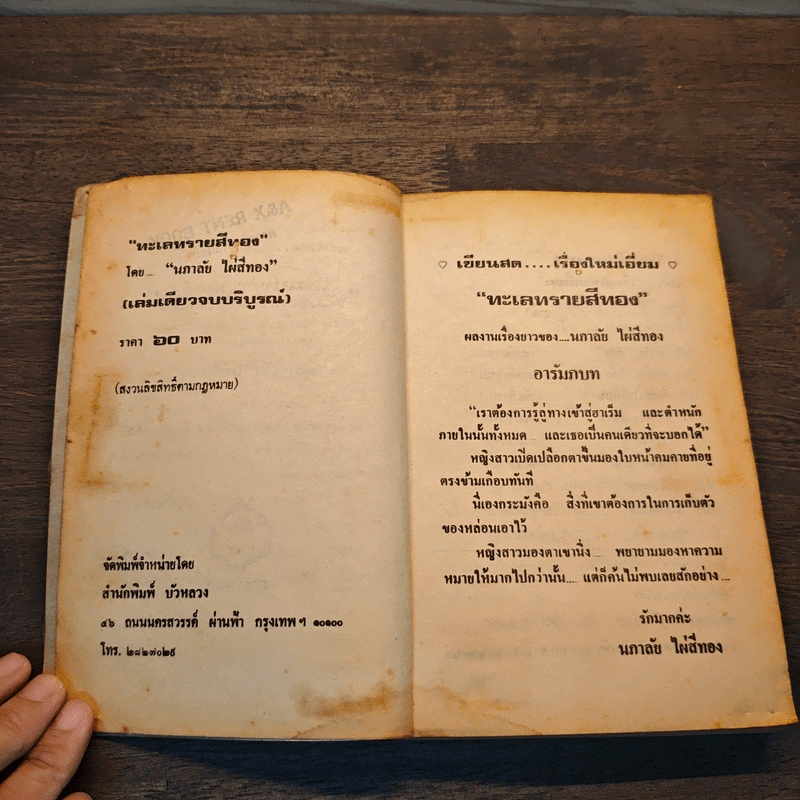 "ทะเลทรายสีทอง"
โดย.... "นภาลัย ไผ่สีทอง"
(เล่มเดียวจบบริบูรณ์)
ราคา ๖๐ บาท
(สงวนลิขสิทธิ์ตามกฎหมาย)
จัดพิมพ์จำหน่ายโดย
สำนักพิมพ์ บัวหลวง
๔๖ ถนนนครสวรรค์ ผ่านฟ้า กรุงเทพฯ ๑๐๑๐๐
โทร. ๒๘๒๗๐๒๙
♡ เขียนสด....เรื่องใหม่เอี่ยม ♡
"ทะเลทรายสีทอง"
ผลงานเรื่องยาวของ....นภาลัย ไผ่สีทอง
อารัมภบท
"เราต้องการรู้ลู่ทางเข้าสู่ฮาเร็ม และตำหนัก
ภายในนั้นทั้งหมด และเธอเป็นคนเดียวที่จะบอกได้"
หญิงสาวเปิดเปลือกตาขึ้นมองใบหน้าคมคายที่อยู่
ตรงข้ามเกือบทันที
นี่เองกระมังคือ สิ่งที่เขาต้องการในการเก็บตัว
ของหล่อนเอาไว้
หญิงสาวมองตาเขานิ่ง.... พยายามมองหาความ
หมายให้มากไปกว่านั้น.... แต่ก็ค้นไม่พบเลยสักอย่าง....
รักมากค่ะ
นภาลัย ไผ่สีทอง